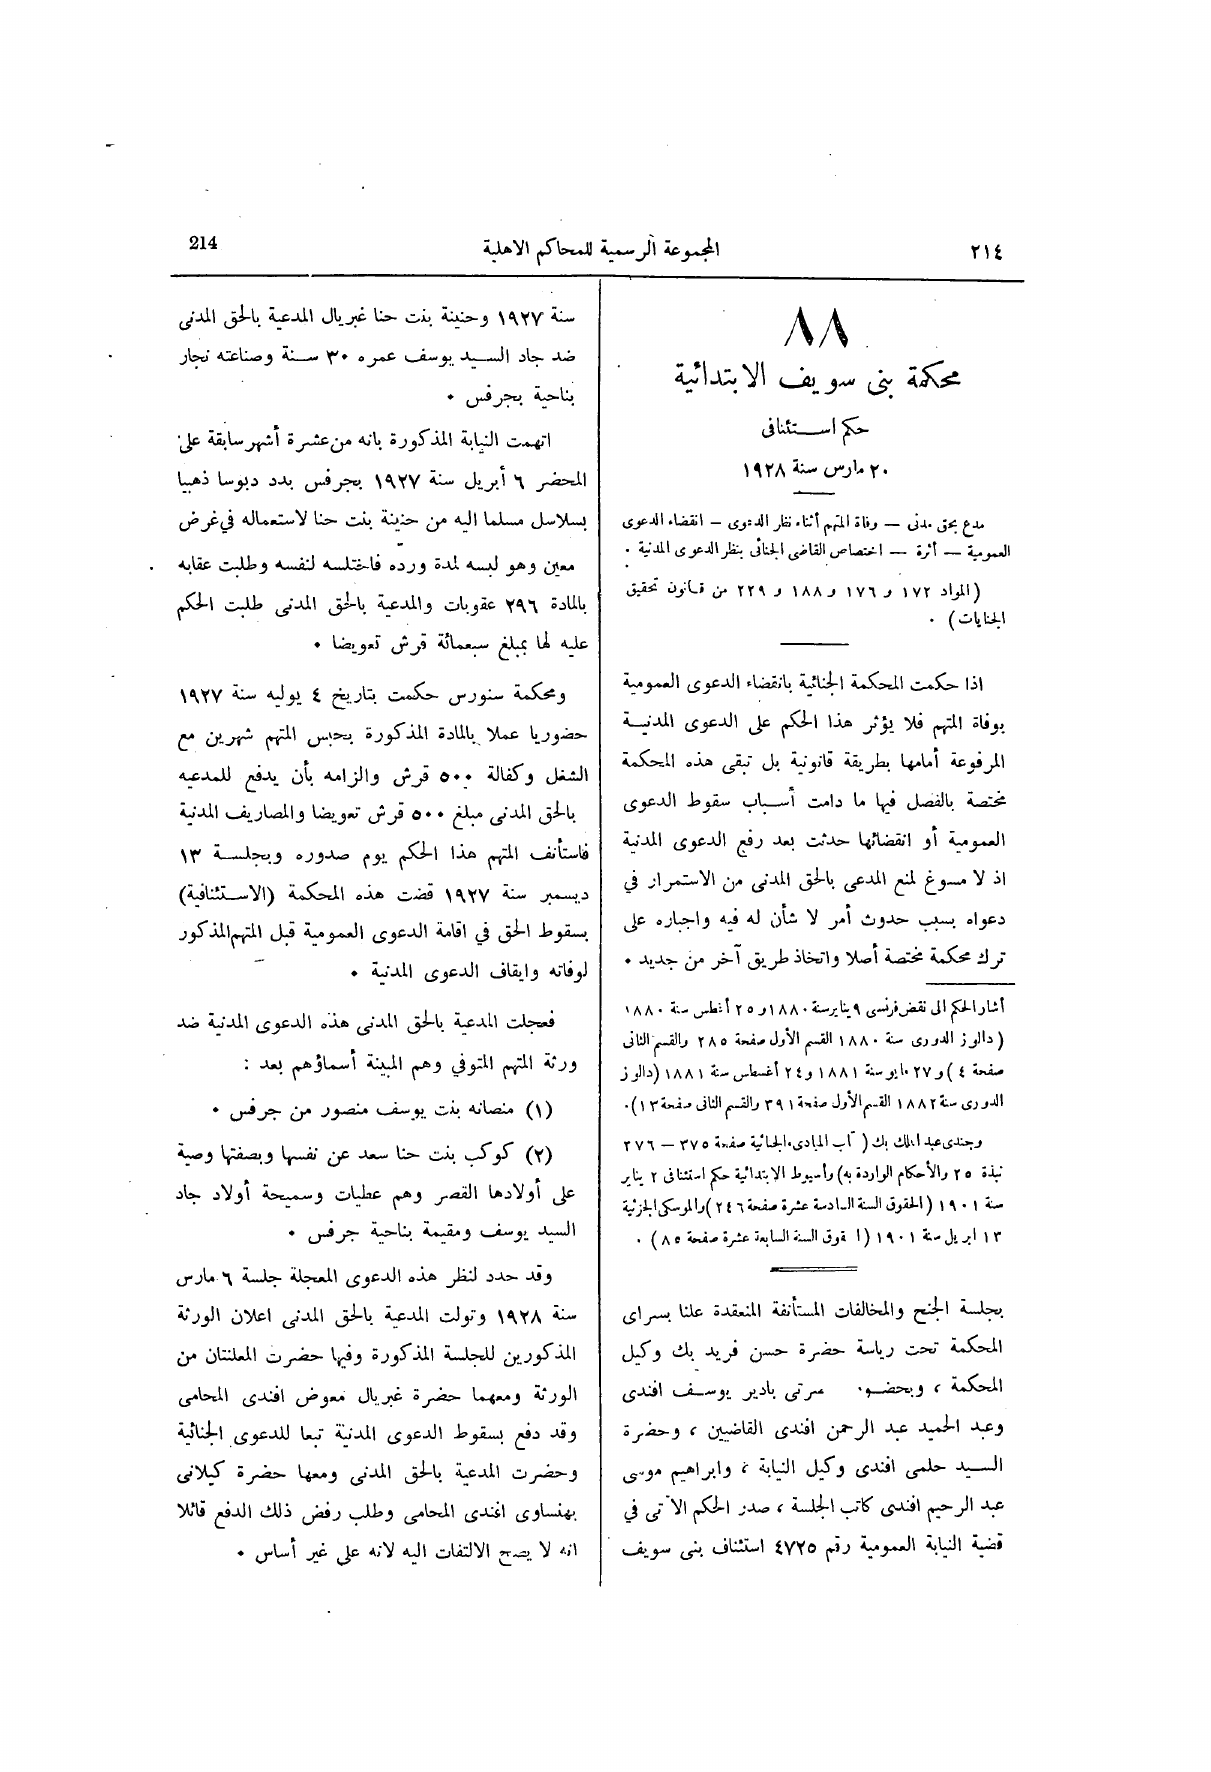 ٢١٤
المجموعة الرسمية للمحاكم الاهلية
214
٨٨
محكمة بنى سويف الابتدائية
حكم استئنافى
٢٠ مارس سنة ١٩٢٨
مدع بحق مدنى — وفاة المتهم أثناء نظر الدعوى — انقضاء الدعوى
العمومية — أثرة — اختصاص القاضى الجنائى بنظر الدعوى المدنية ٠
(المواد ١٧٢ و ١٧٦ و ١٨٨ و ٢٢٩ من قانون تحقيق
الجنايات) ٠
اذا حكمت المحكمة الجنائية بانقضاء الدعوى العمومية
بوفاة المتهم فلا يؤثر هذا الحكم على الدعوى المدنية
المرفوعة أمامها بطريقة قانونية بل تبقى هذه المحكمة
مختصة بالفصل فيها ما دامت أسباب سقوط الدعوى
العمومية أو انقضائها حدثت بعد رفع الدعوى المدنية
اذ لا مسوغ لمنع المدعى بالحق المدنى من الاستمرار في
دعواه بسبب حدوث أمر لا شأن له فيه واجباره على
ترك محكمة مختصة أصلا واتخاذ طريق آخر من جديد ٠
أشار الحكم الى نقض فرنسى ٩ يناير سنة ١٨٨٠ و ٢٥ أغطس سنة ١٨٨٠
(دالوز الدورى سنة ١٨٨٠ القسم الأول صفحة ٢٨٥ والقسم الثانى
صفحة ٤) و ٢٧ مايو سنة ١٨٨١ و ٢٤ أغسطس سنة ١٨٨١ (دالوز
الدورى سنة ١٨٨٢ القسم الأول صفحة ٣٩١ والقسم الثانى صفحة ١٣)٠
وجندى عبد الملك بك (كتاب المبادىء الجنائية صفحة ٣٧٥ — ٢٧٦
نبذة ٢٥ والأحكام الواردة به) وأسيوط الابتدائية حكم استئنافى ٢ يناير
سنة ١٩٠١ (الحقوق السنة السادسة عشرة صفحة ٢٤٦) والموسكى الجزئية
١٣ ابريل سنة ١٩٠١ (الحقوق السنة السابعة عشرة صفحة ٨٥) ٠
بجلسة الجنح والمخالفات المستأنفة المنعقدة علنا بسراى
المحكمة تحت رياسة حضرة حسن فريد بك وكيل
المحكمة ، وبحضور حضرتى بادير يوسف افندى
وعبد الحميد عبد الرحمن افندى القاضيين ، وحضرة
السيد حلمى افندى وكيل النيابة ، وابراهيم موسى
عبد الرحيم افندى كاتب الجلسة ، صدر الحكم الآتى في
قضية النيابة العمومية رقم ٤٧٢٥ استئناف بنى سويف
سنة ١٩٢٧ وحنينة بنت حنا غبريال المدعية بالحق المدنى
ضد جاد السيد يوسف عمره ٣٠ سنة وصناعته نجار
بناحية بجرفس ٠
اتهمت النيابة المذكورة بانه من عشرة أشهر سابقة على
المحضر ٦ أبريل سنة ١٩٢٧ بجرفس بدد دبوسا ذهبيا
بسلاسل مسلما اليه من حنينة بنت حنا لاستعماله في غرض
معين وهو لبسه لمدة ورده فاختلسه لنفسه وطلبت عقابه
بالمادة ٢٩٦ عقوبات والمدعية بالحق المدنى طلبت الحكم
عليه لها بمبلغ سبعمائة قرش تعويضا ٠
ومحكمة سنورس حكمت بتاريخ ٤ يوليه سنة ١٩٢٧
حضوريا عملا بالمادة المذكورة بحبس المتهم شهرين مع
الشغل وكفالة ٥٠٠ قرش والزامه بأن يدفع للمدعيه
بالحق المدنى مبلغ ٥٠٠ قرش تعويضا والمصاريف المدنية
فاستأنف المتهم هذا الحكم يوم صدوره وبجلسة ١٣
ديسمبر سنة ١٩٢٧ قضت هذه المحكمة (الاستئنافية)
بسقوط الحق في اقامة الدعوى العمومية قبل المتهم المذكور
لوفاته وايقاف الدعوى المدنية ٠
فعجلت المدعية بالحق المدنى هذه الدعوى المدنية ضد
ورثة المتهم المتوفي وهم المبينة أسماؤهم بعد :
(١) منصانه بنت يوسف منصور من جرفس ٠
(٢) كوكب بنت حنا سعد عن نفسها وبصفتها وصية
على أولادها القصر وهم عطيات وسميحة أولاد جاد
السيد يوسف ومقيمة بناحية جرفس ٠
وقد حدد لنظر هذه الدعوى المعجلة جلسة ٦ مارس
سنة ١٩٢٨ وتولت المدعية بالحق المدنى اعلان الورثة
المذكورين للجلسة المذكورة وفيها حضرت المعلنتان من
الورثة ومعهما حضرة غبريال معوض افندى المحامى
وقد دفع بسقوط الدعوى المدنية تبعا للدعوى الجنائية
وحضرت المدعية بالحق المدنى ومعها حضرة كيلانى
بهنساوى افندى المحامى وطلب رفض ذلك الدفع قائلا
انه لا يصح الالتفات اليه لانه على غير أساس ٠